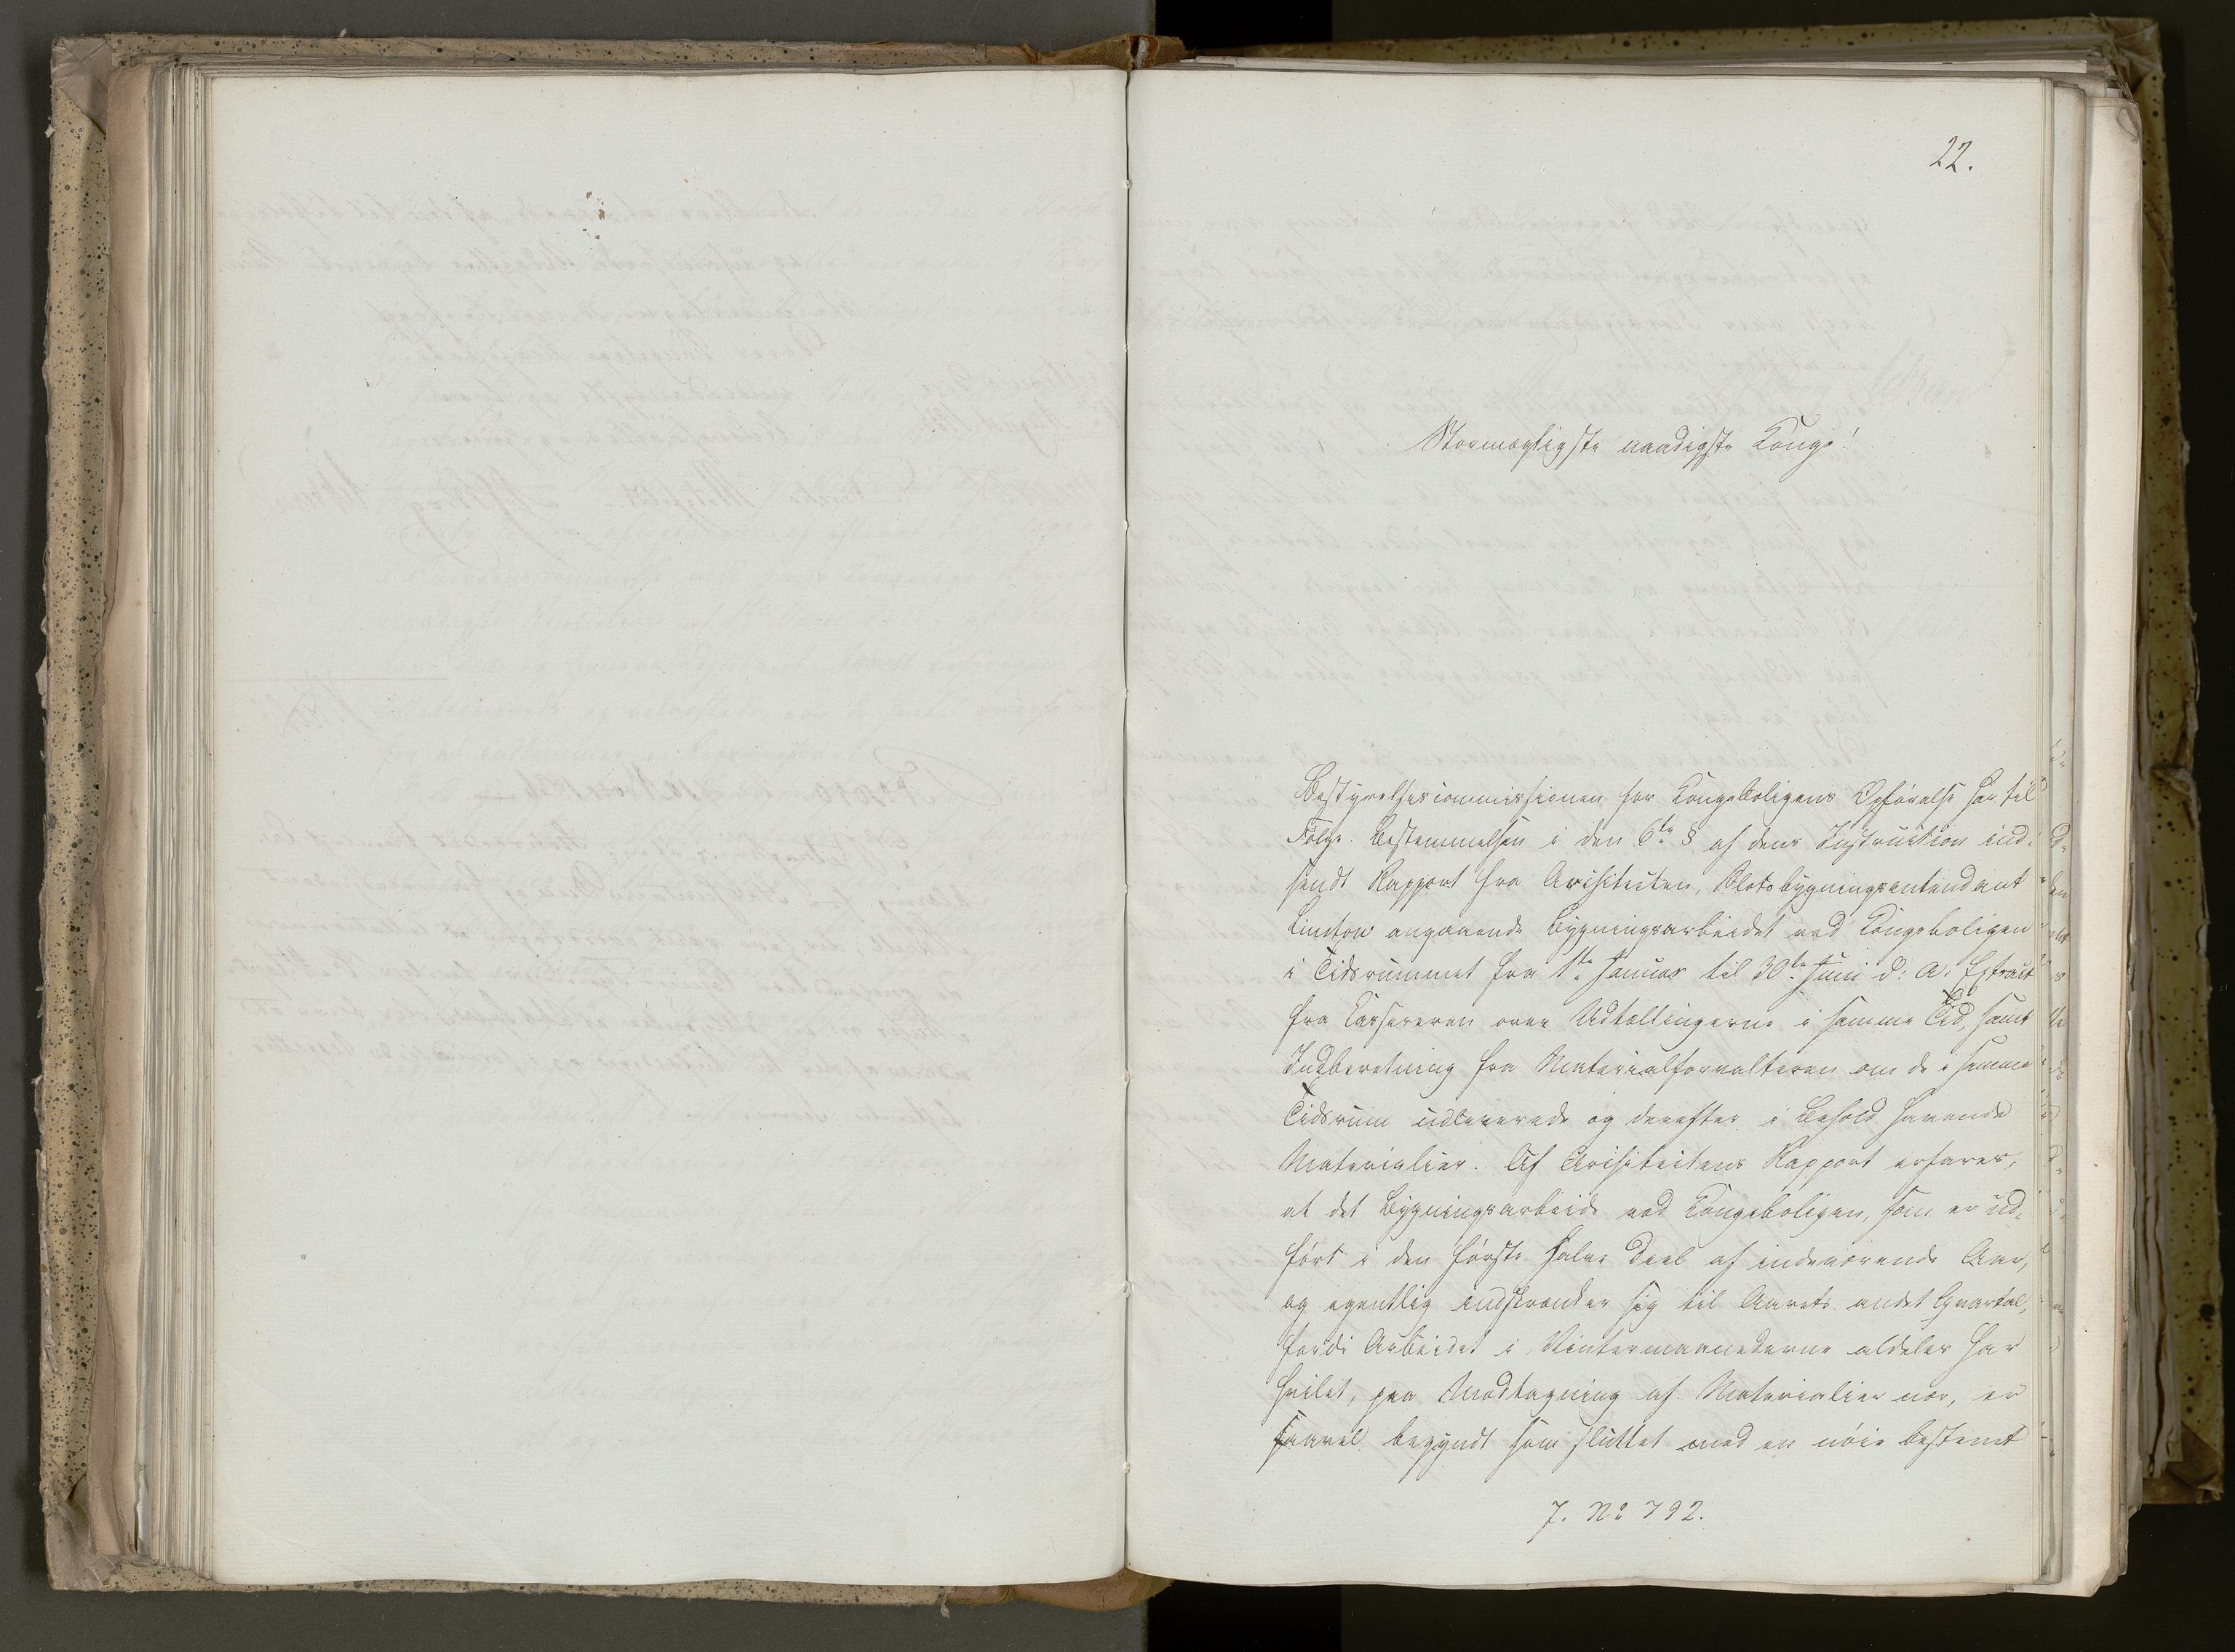 22.
Stormægtigste naadigste Konge!
Bestyrelsescommissionen for Kongeboligens Opførelse har til
Følge Bestemmelsen i den 6te § af dens Instruction ind-
sendt Rapport fra Architecten, Slotsbygningsintendant
Linstow angaaende Bygningsarbeidet ved Kongeboligen
i Tidsrummet fra 1ste Januar til 30te Juni d: A: Extract
fra Kassereren over Udtællingerne i samme Tid, samt
Indberetning fra Materialforvalteren om de i samme
Tidsrum udleverede og derefter i Behold havende
Materialier. Af Architectens Rapport erfares,
at det Bygningsarbeide ved Kongeboligen, som er ud-
ført i den første halve Deel af indeværende Aar,
og egentlig indskrænker sig til Aarets andet Qvartal,
fordi Arbeidet i Vintermaanederne aldeles har
hvilet, paa Modtagning af Materialier nær, er
saavel begyndt som sluttet med en nøie bestemt
J. No 792.